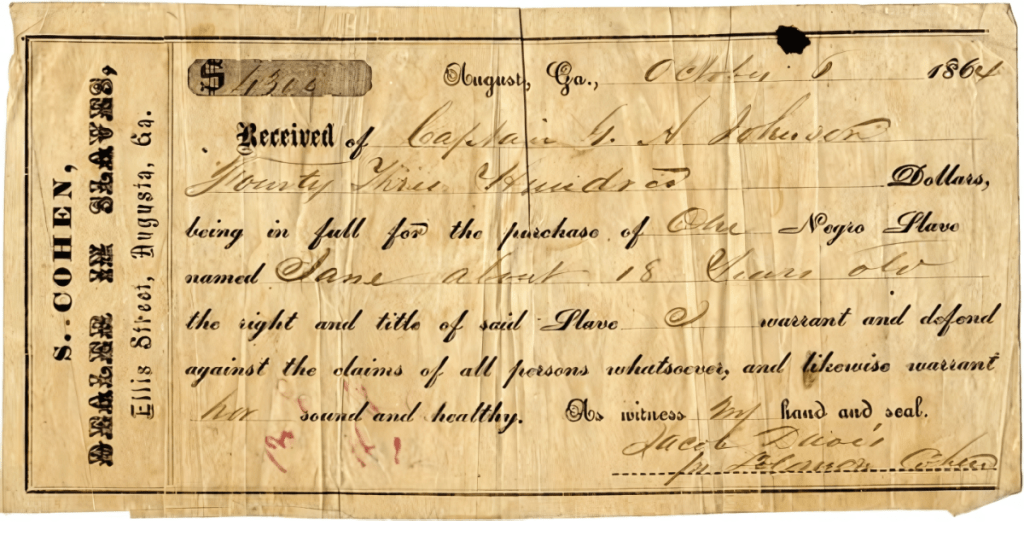 S. COHEN,
DEALER IN SLAVES,
Ellis Street, Augusta, Ga.
$ 4300
August, Ga., October 6 1864
Received of Captain G. H Johnson
Fourty Three Hundred Dollars,
being in full for the purchase of One Negro Slave
named Jane about 18 Years old
the right and title of said Slave I warrant and defend
against the claims of all persons whatsoever, and likewise warrant
her sound and healthy. As witness my hand and seal.
Jacob Davis
for Solomon Cohen